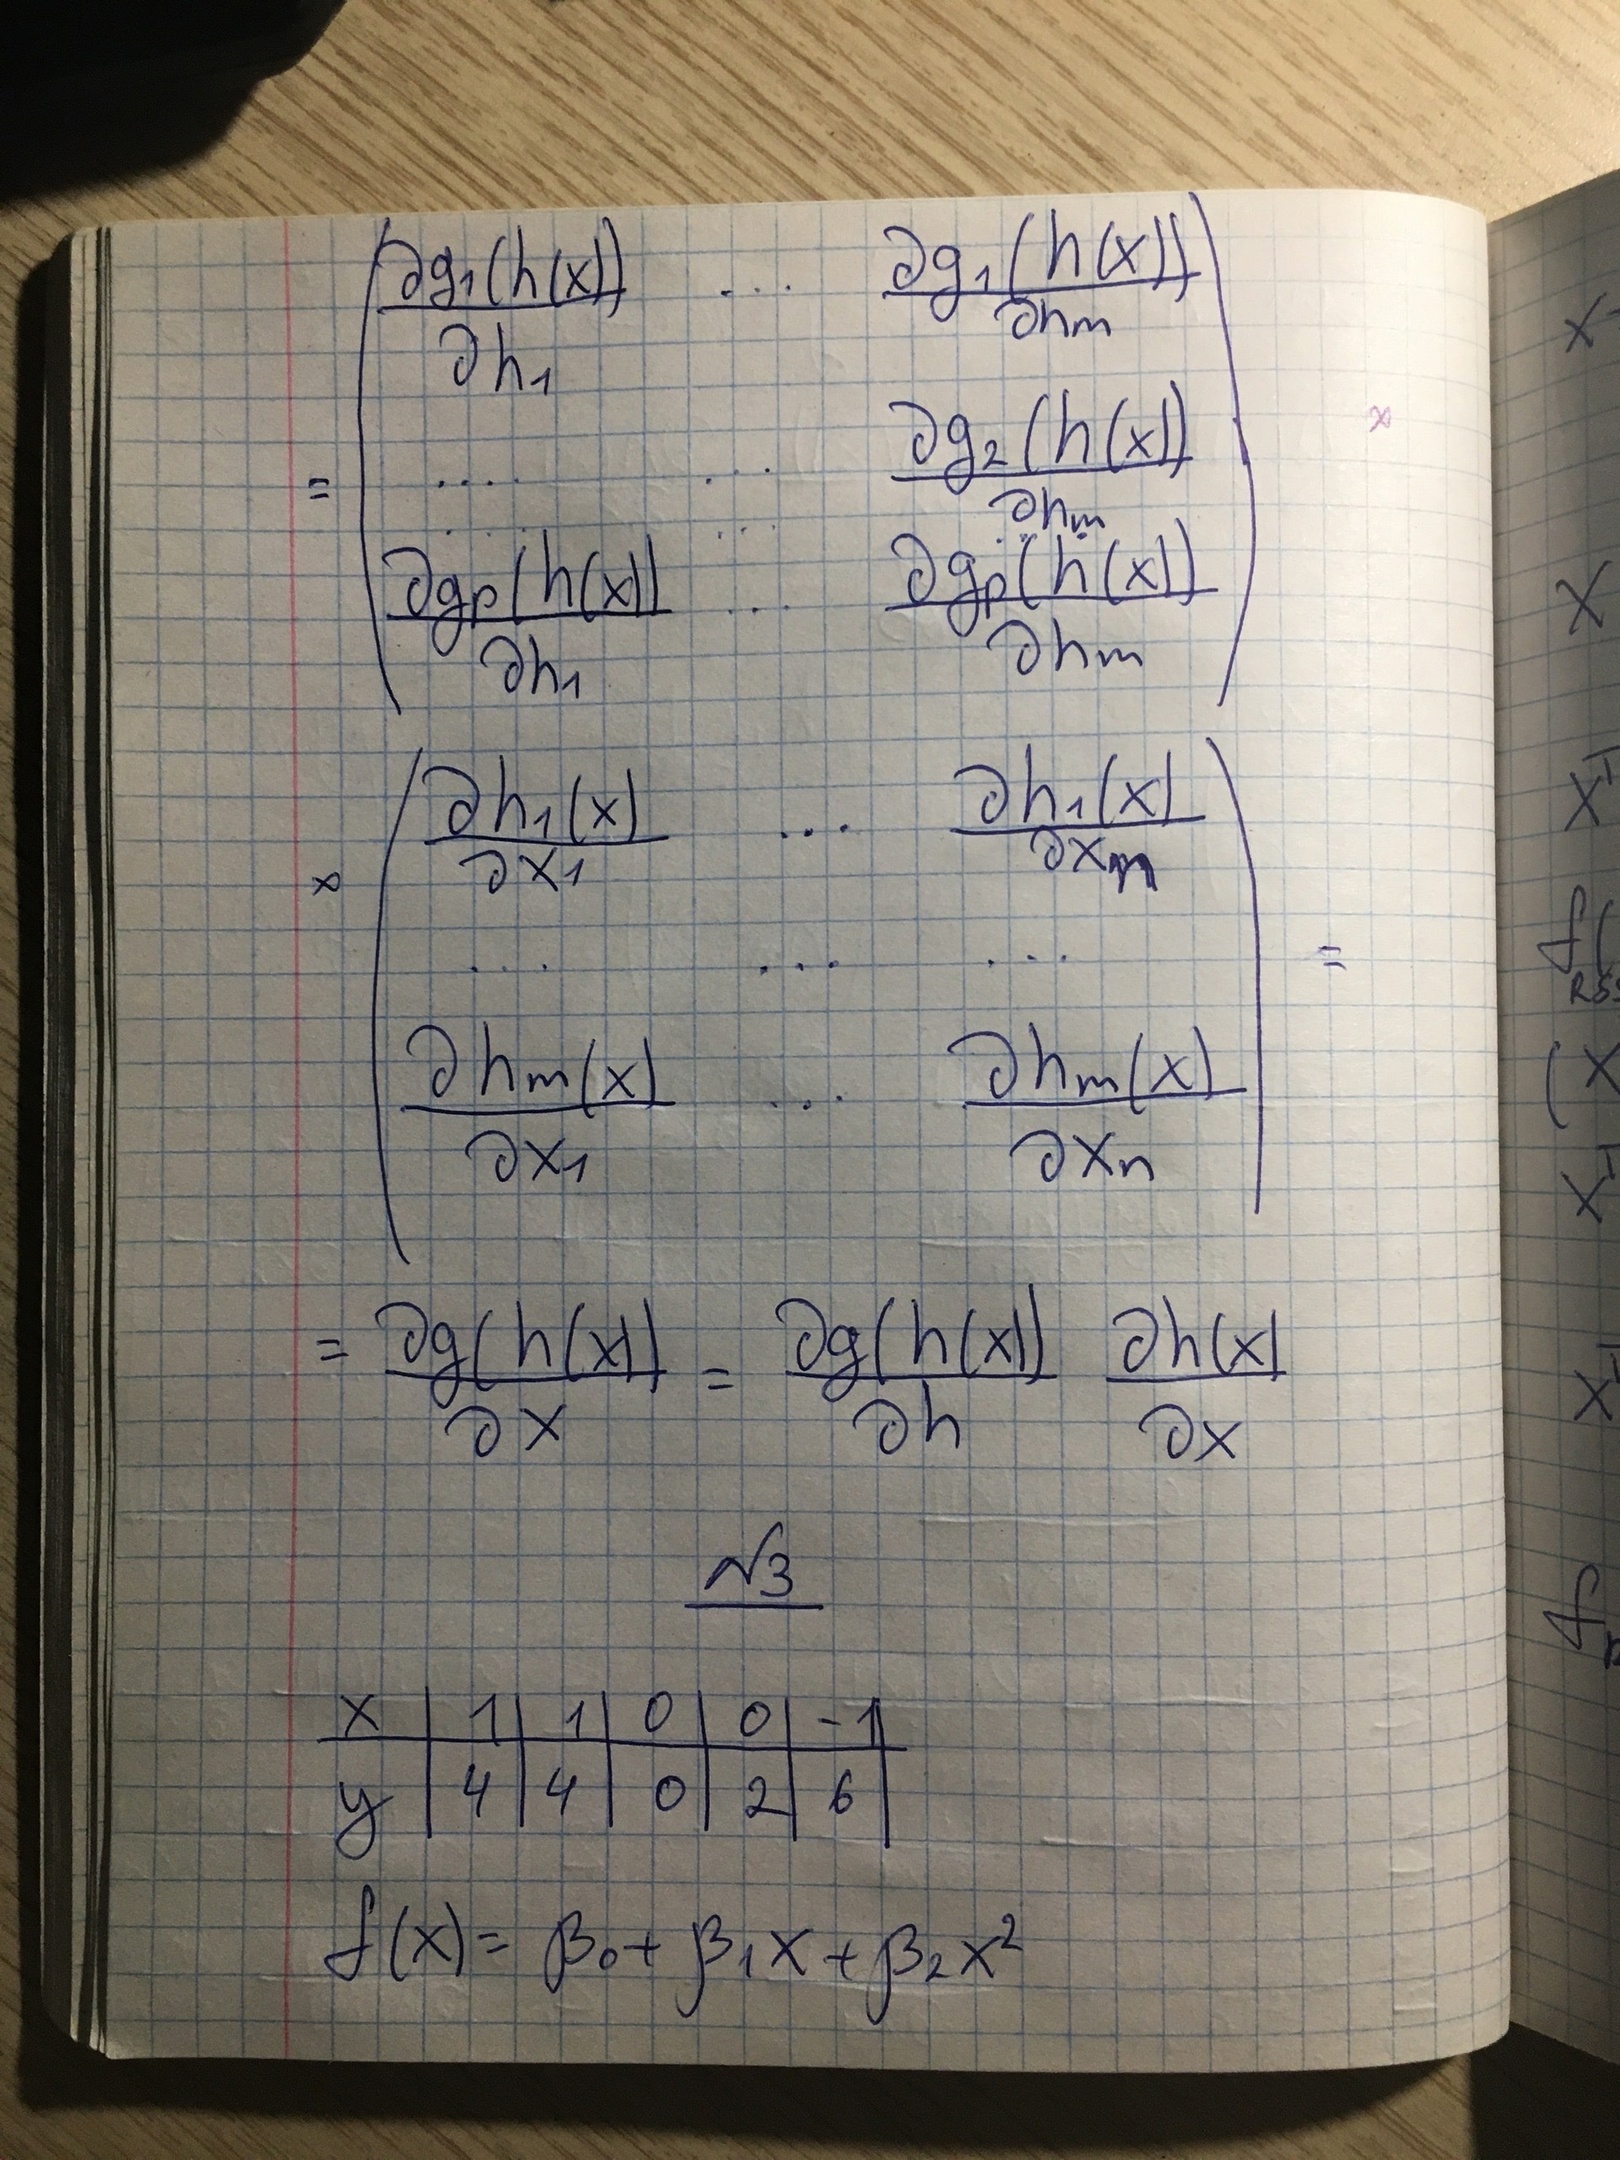 = ( ∂g₁(h(x))/∂h₁ ... ∂g₁(h(x))/∂hₘ
.... ... ∂g₂(h(x))/∂hₘ
.... ... ...
∂gₚ(h(x))/∂h₁ ... ∂gₚ(h(x))/∂hₘ ) ×
× ( ∂h₁(x)/∂x₁ ... ∂h₁(x)/∂xₙ
... ... ...
∂hₘ(x)/∂x₁ ... ∂hₘ(x)/∂xₙ ) =
= ∂g(h(x))/∂x = ∂g(h(x))/∂h ∂h(x)/∂x
№3
x | 1 | 1 | 0 | 0 | -1
y | 4 | 4 | 0 | 2 | 6
f(x) = β₀ + β₁x + β₂x²